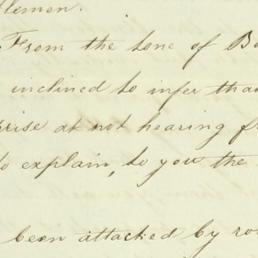 From the tone of
inclined to infer
at not hearing
explain, to you the
been attacked by